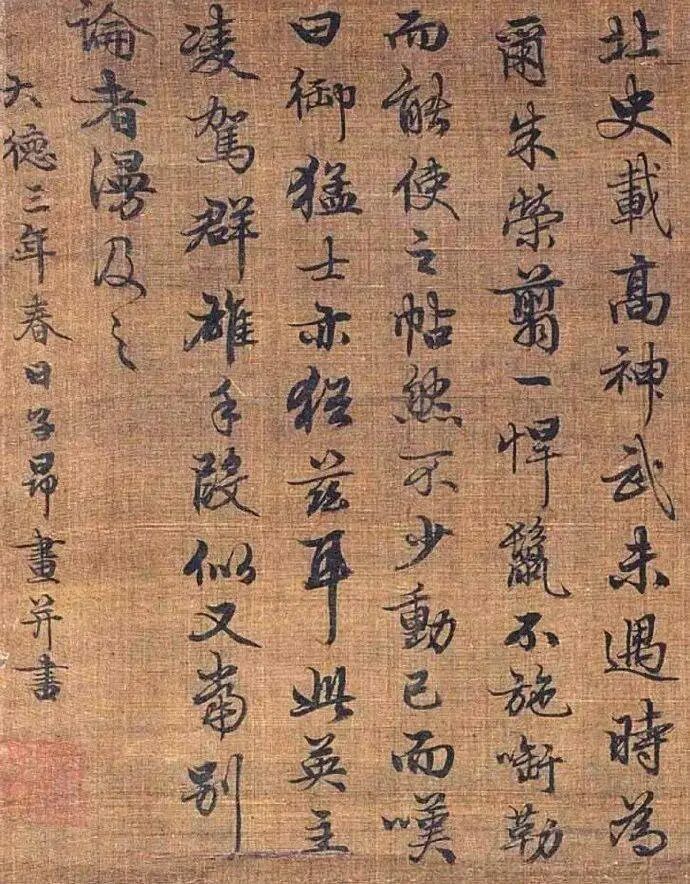 北史載高神武未遇時為
爾朱榮翦一悍鬣不施銜勒
而能使之帖然不少動已而嘆
曰御猛士亦猶茲耳此英主
凌駕群雄手段似又當別
論者漫及之
大德三年春日子昂畫并書